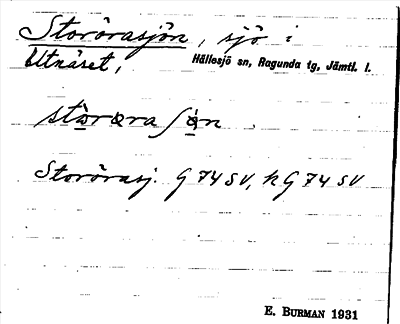 Storörasjön, sjö i
Utnäset, Hällesjö sn, Ragunda tg, Jämtl. l.
Storörasj. G 74 SV, hG 74 SV
E. BURMAN 1931